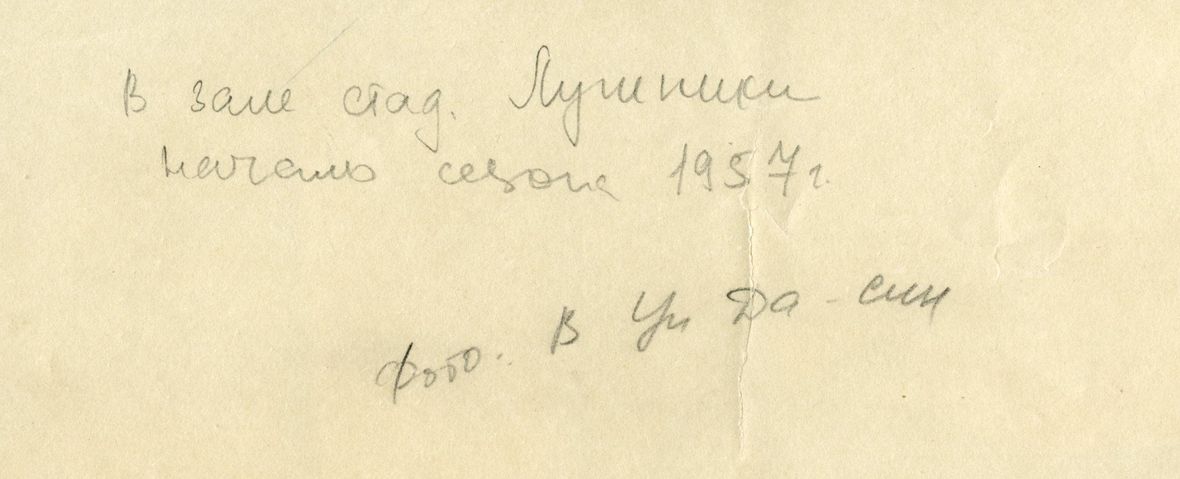 В зале стад. Лужники
начало сезона 1957 г.
фото. В Ун Да-син